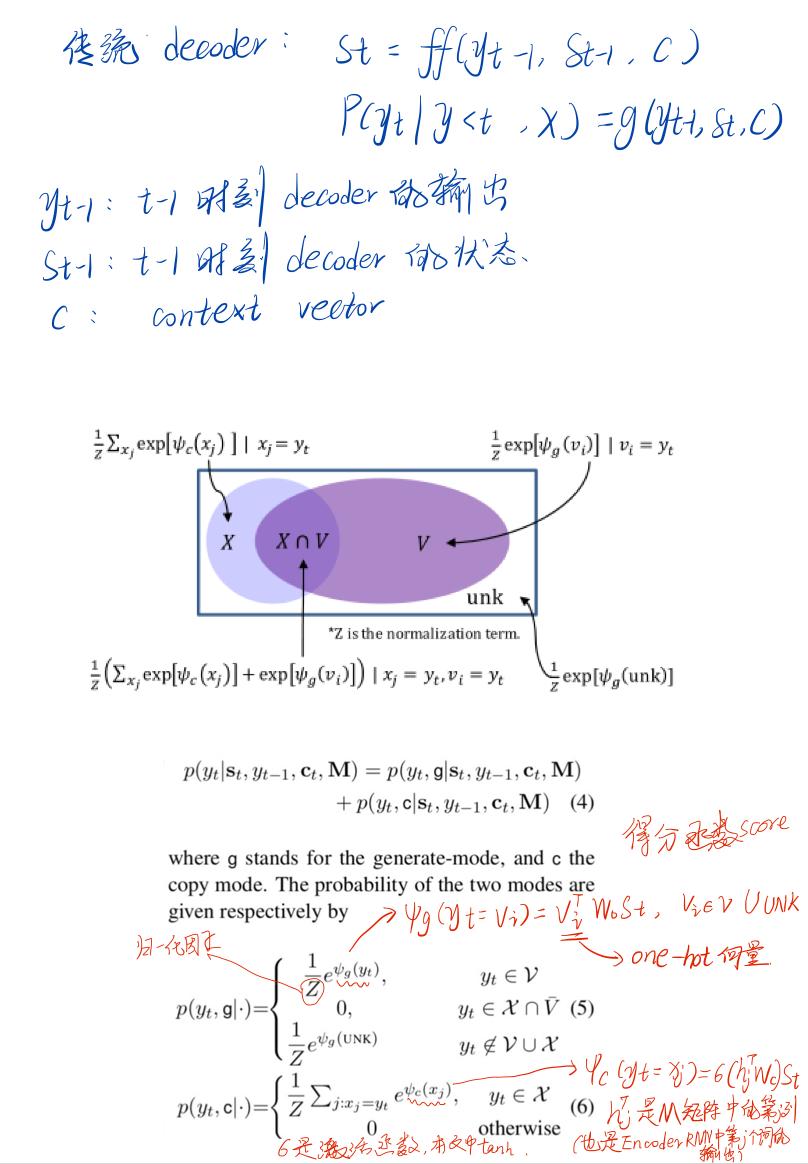 传统 decoder: St = ff(yt-1, St-1, C)
P(yt | y<t, X) = g(yt-1, St, C)
yt-1: t-1 时刻 decoder 的输出
St-1: t-1 时刻 decoder 的状态.
C: context vector
1/Z Σxj exp[ψc(xj)] | xj = yt
1/Z exp[ψg(vi)] | vi = yt
X
X ∩ V
V
unk
*Z is the normalization term.
1/Z (Σxj exp[ψc(xj)] + exp[ψg(vi)]) | xj = yt, vi = yt
1/Z exp[ψg(unk)]
p(yt|st, yt−1, ct, M) = p(yt, g|st, yt−1, ct, M)
+ p(yt, c|st, yt−1, ct, M) (4)
得分函数score
where g stands for the generate-mode, and c the
copy mode. The probability of the two modes are
given respectively by
ψg(yt = Vi) = Vi^T Wo St, Vi ∈ V ∪ UNK
one-hot 向量
归一化因子
p(yt, g|·) = { 1/Z e^ψg(yt), yt ∈ V
0, yt ∈ X ∩ V̄ (5)
1/Z e^ψg(UNK) yt ∉ V ∪ X
ψc(yt = xj) = 6(hj^T Wc) St
p(yt, c|·) = { 1/Z Σj:xj=yt e^ψc(xj), yt ∈ X (6)
0 otherwise
hj^T 是M矩阵中的第j列
(也是Encoder RNN中第j个词的
输出)
6是激活函数, 本文中tanh.